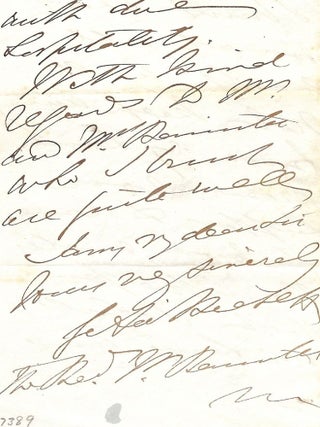 with due
hospitality.
With kind
regards to Mr.
and Mrs
who I trust
are quite well
I am my dear Sir
Yours very sincerely
The Revd. W.
7389